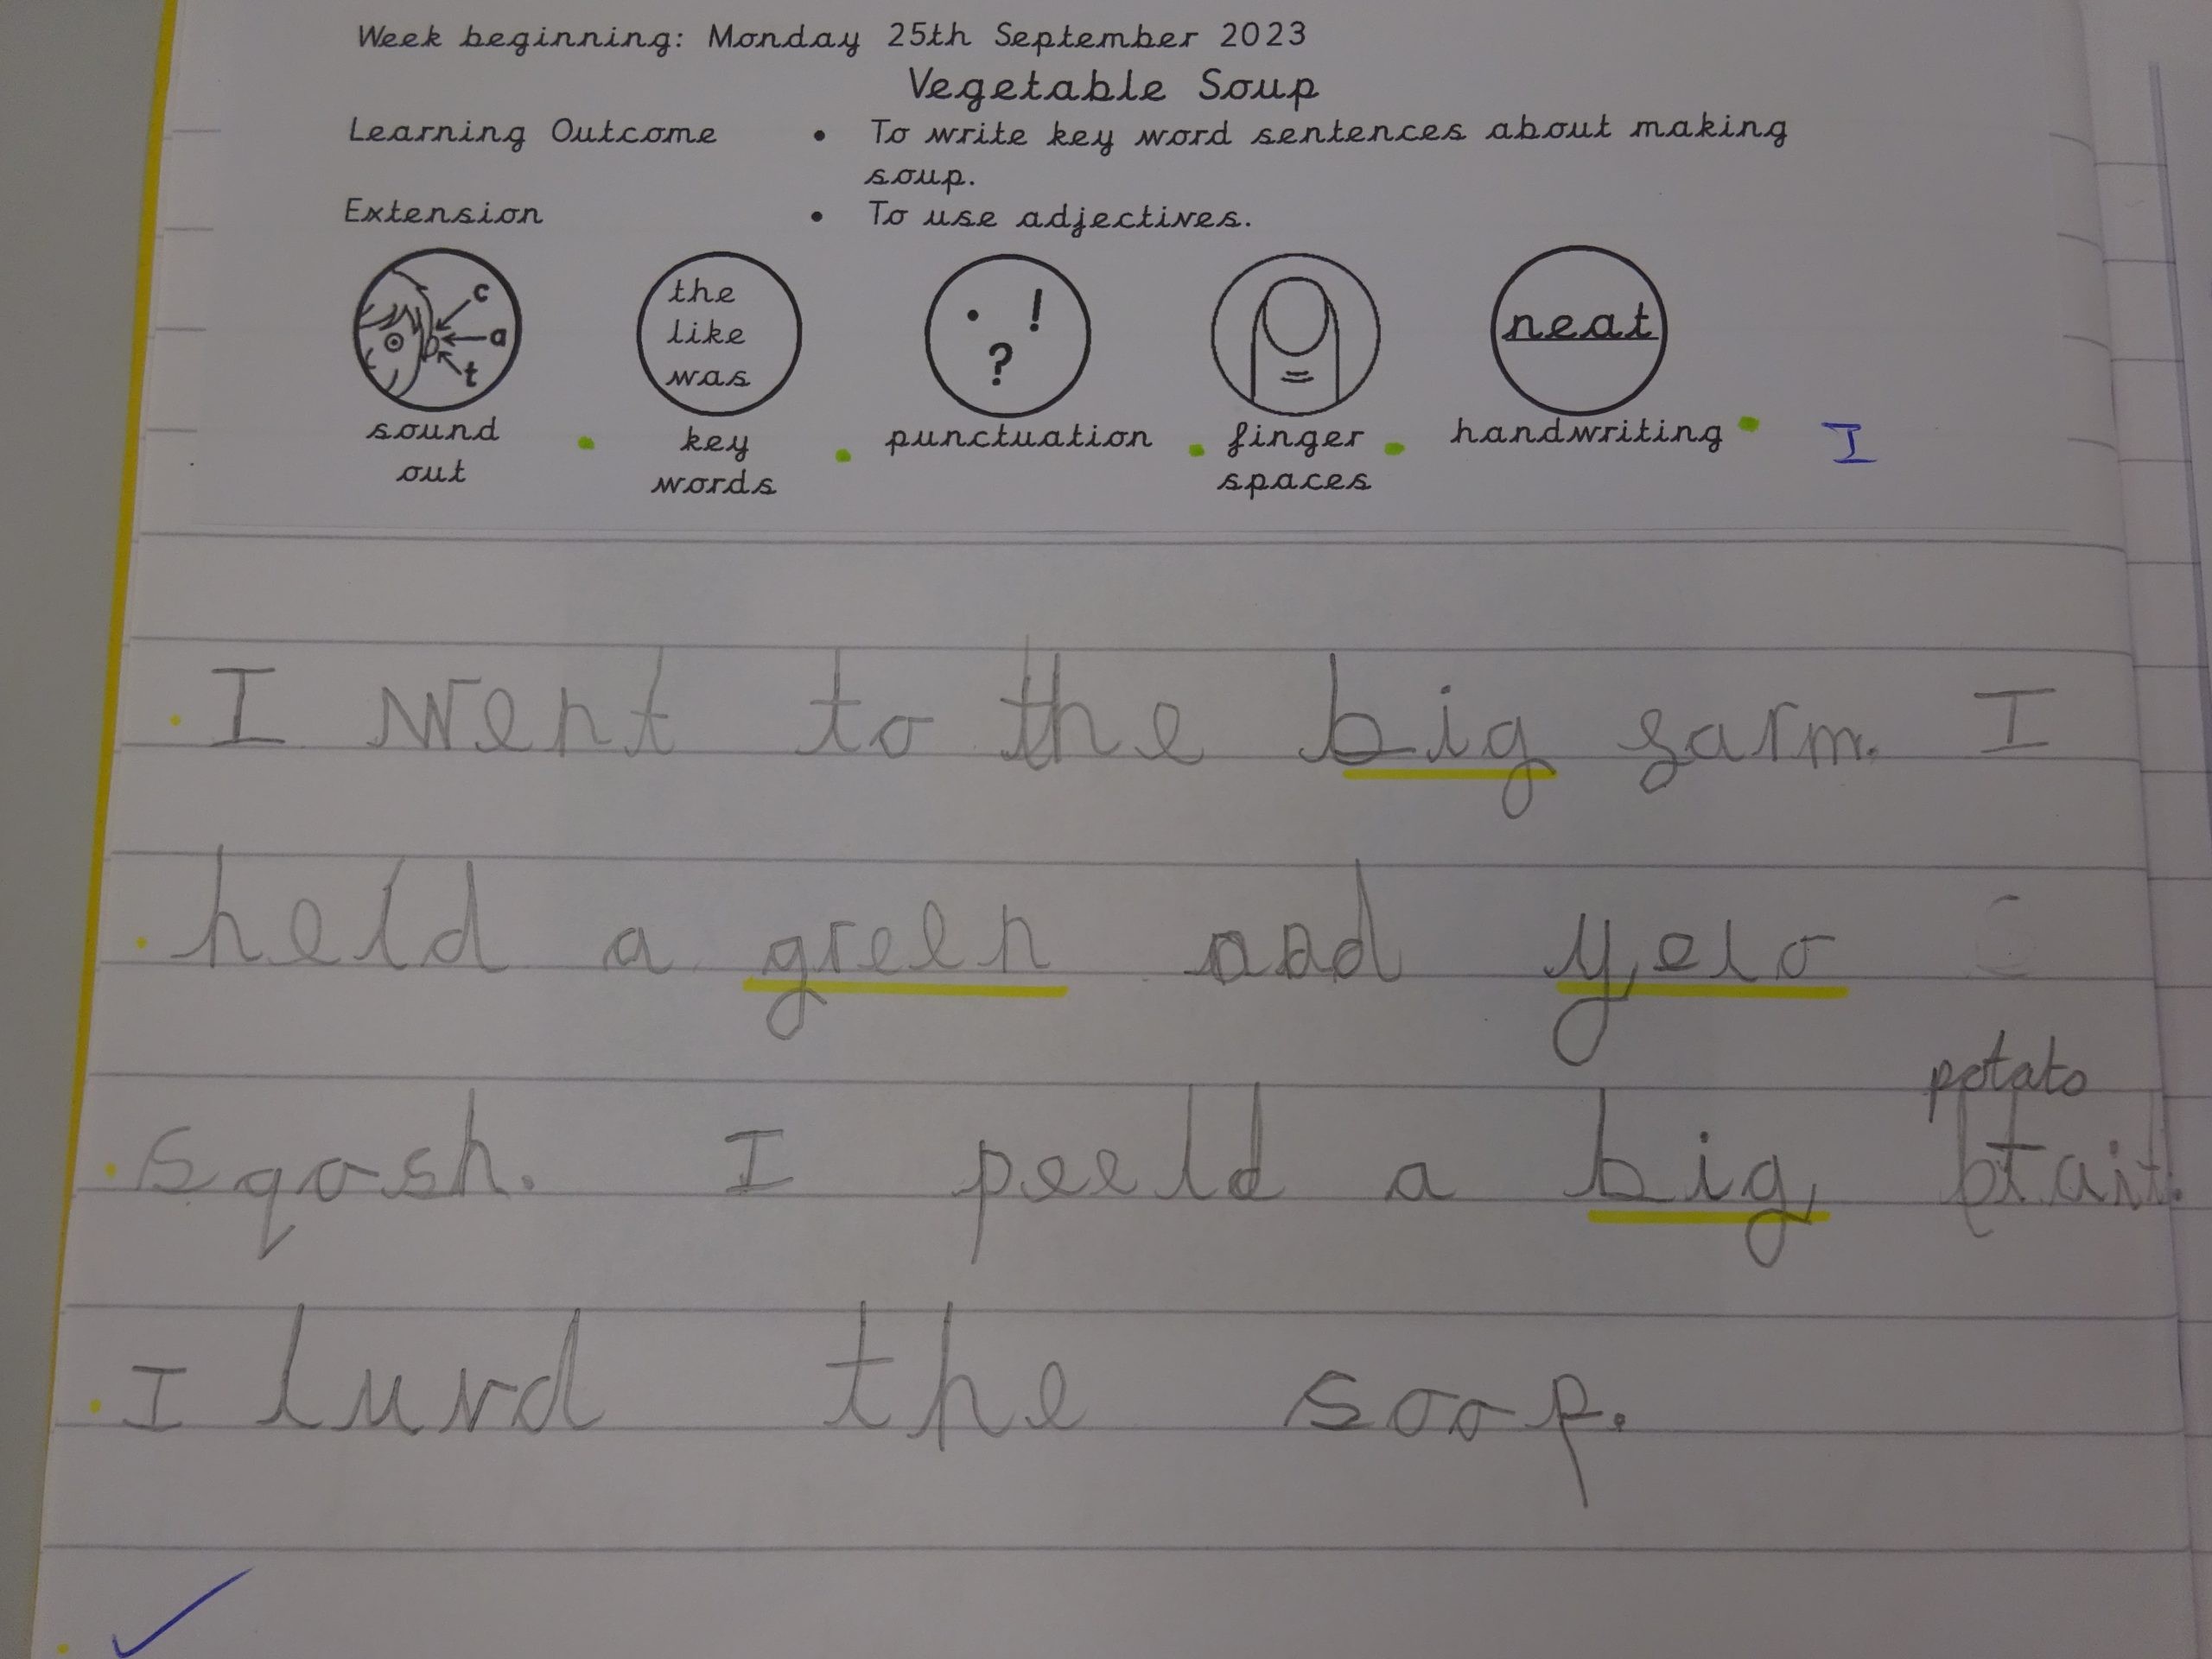 Week beginning: Monday 25th September 2023
Vegetable Soup
Learning Outcome • To write key word sentences about making
soup.
Extension • To use adjectives.
c
a
t
the
like
was
. !
?
neat
sound out
key words
punctuation
finger spaces
handwriting
I
I went to the big farm. I
held a green and yelo
potato
sqosh. I peeld a big ptait.
I luvd the soop.